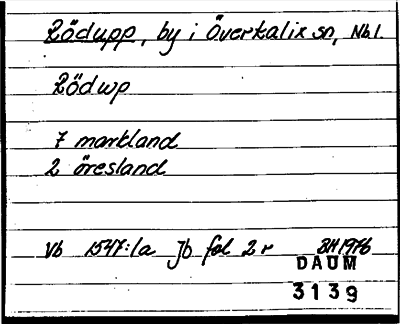 Rödupp, by i Överkalix sn, Nbl.
Rödwp
7 markland
2 öresland
Vb 1547:1a Jb fol 2 r BH1976
DAUM
3139